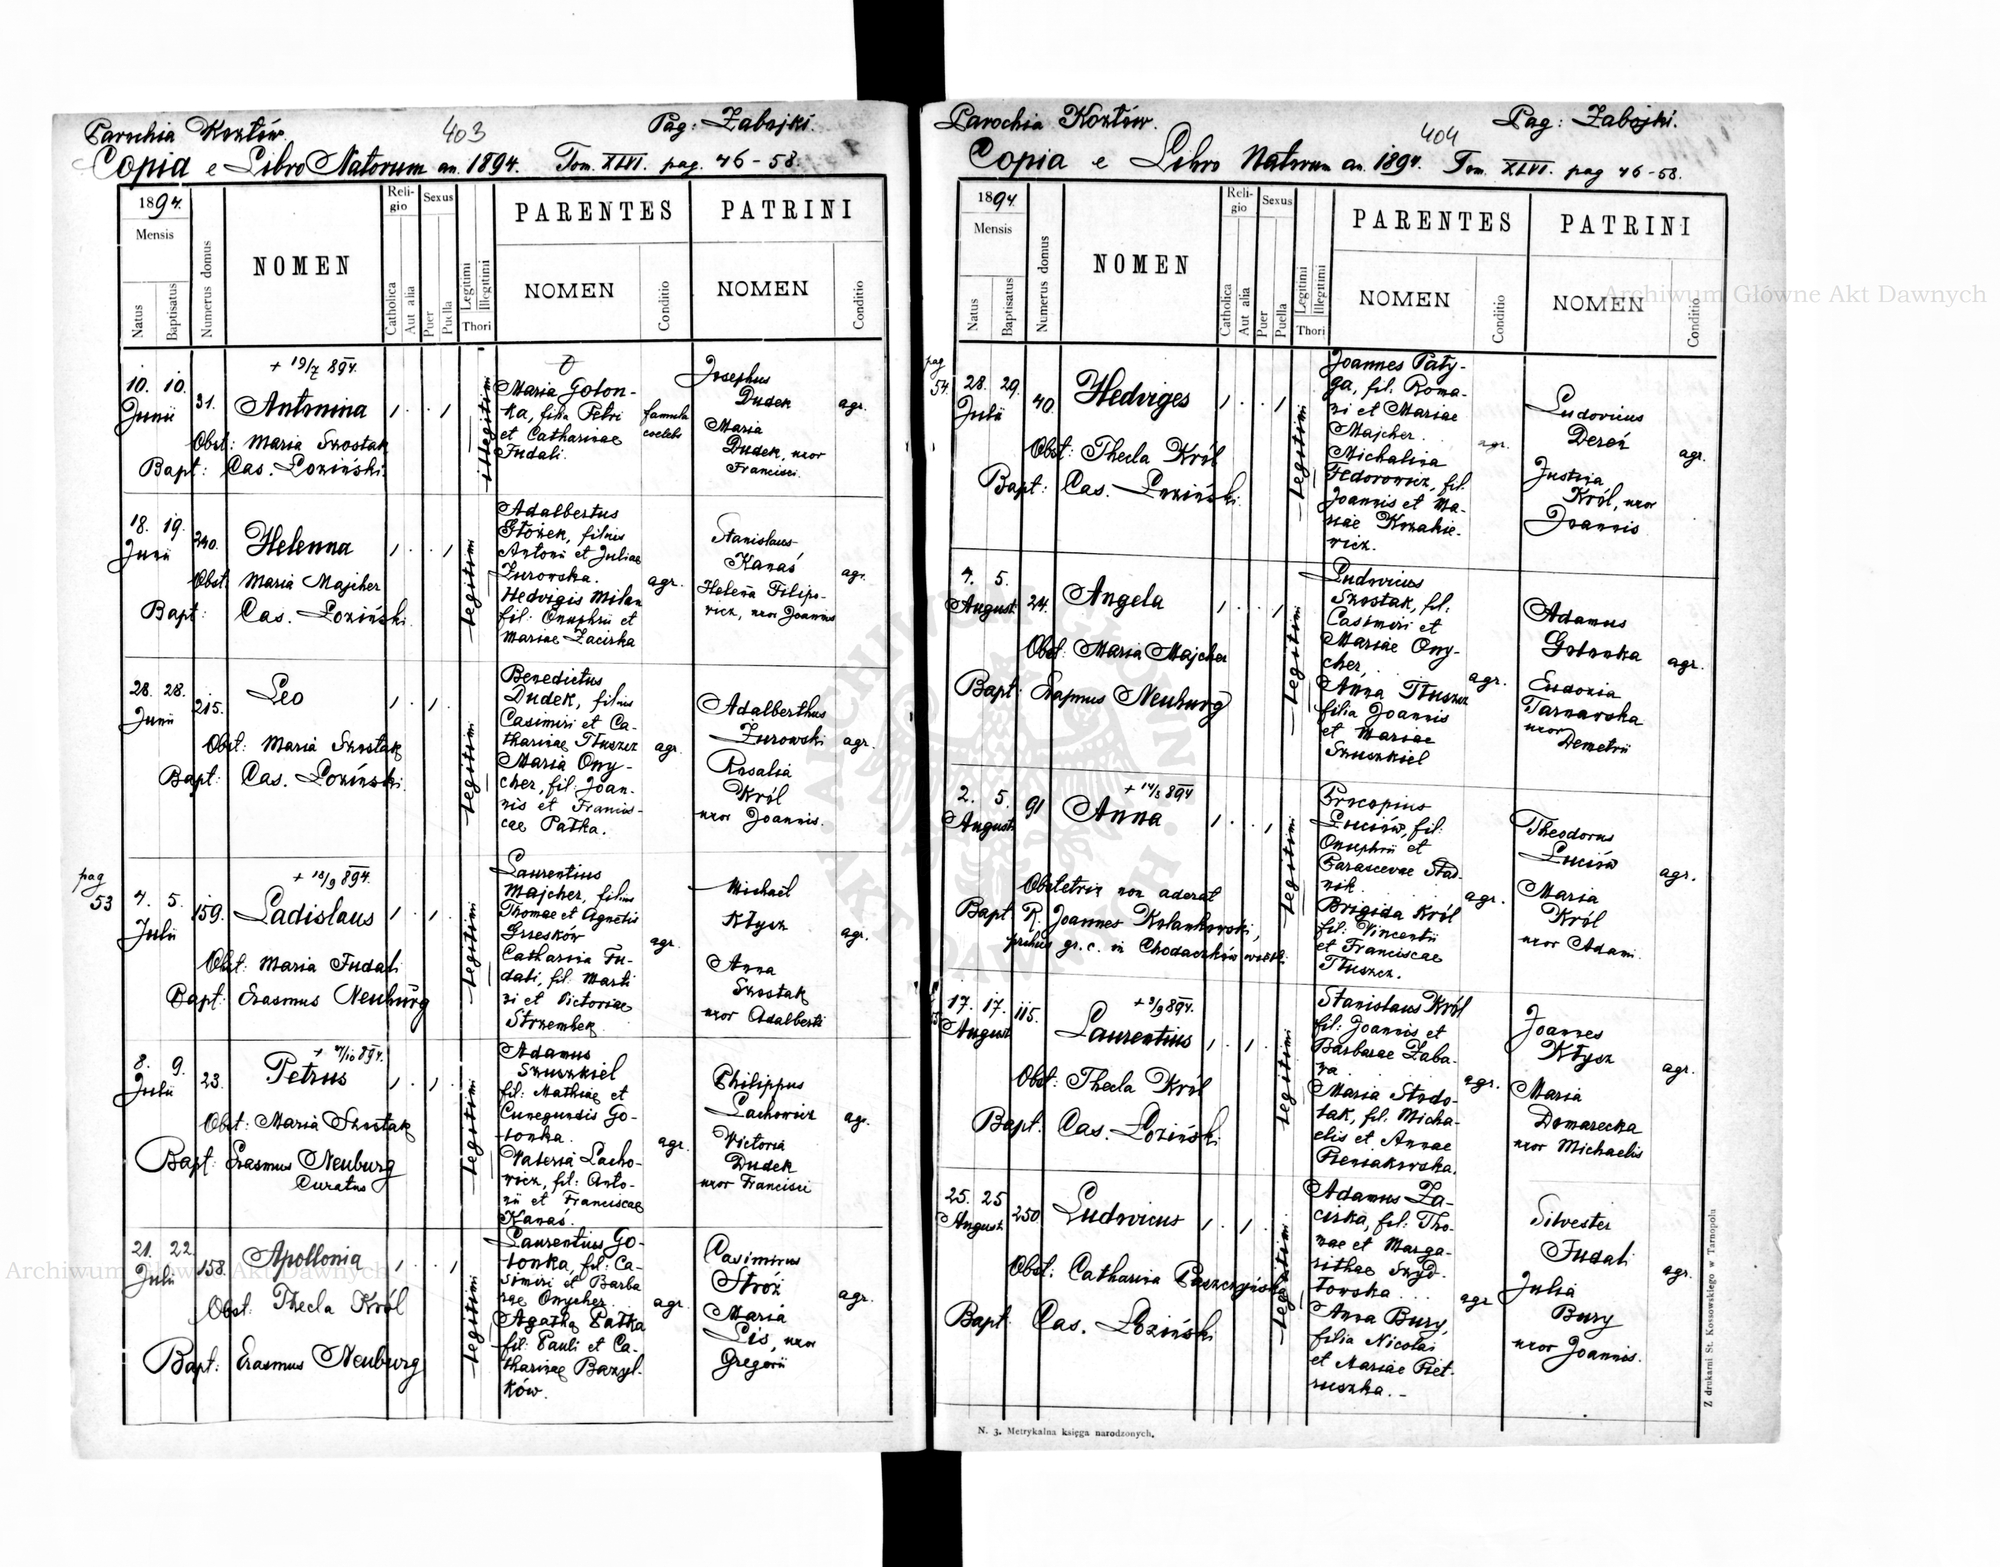 Parochia Kozłów.
403
Pag: Zabojki.
Copia e Libro Natorum an. 1894. Tom. XLVI. pag. 46-58.
1894.
Mensis
Natus
Baptisatus
Numerus domus
NOMEN
Religio
Catholica
Aut alia
Sexus
Puer
Puella
Legitimi
Illegitimi
Thori
PARENTES
NOMEN
Conditio
PATRINI
NOMEN
Conditio
10. 10.
Junii
31.
+ 19/7 894.
Antonina
Obst: Maria Szostak
Bapt: Cas. Łoziński.
illegitimi
Maria Gołon-
ka, filia Petri
et Catharinae
Fudali.
famula
coelebs
Josephus
Dudek
Maria
Dudek, uxor
Francisci.
agr.
18. 19.
Junii
240.
Helenna
Obst. Maria Majcher
Bapt: Cas. Łoziński.
legitimi
Adalbertus
Głożek, filius
Antoni et Juliae
Żurowska.
Hedvigis Milan
fil: Onuphrii et
Mariae Zacirka
agr.
Stanislaus
Kanaś
Helena Filipo-
wicz, uxor Joannis
agr.
28. 28.
Junii
215.
Leo
Obst: Maria Szostak
Bapt: Cas. Łoziński.
legitimi
Benedictus
Dudek, filius
Casimiri et Ca-
tharinae Tłuszcz
Maria Ony-
cher, fil: Joan-
nis et Francis-
cae Pałka.
agr.
Adalberthus
Żurowski
Rosalia
Król
uxor Joannis.
agr.
pag
53
4. 5.
Julii
159.
+ 18/9 894.
Ladislaus
Obst: Maria Fudali
Bapt: Erasmus Neuburg
legitimi
Laurentius
Majcher, filius
Thomae et Agnetis
Grzesków
Catharina Fu-
dali, fil: Marti
ni et Victoriae
Strzembek
agr.
Michael
Kłysz
Anna
Szostak
uxor Adalberti
agr.
8. 9.
Julii
23.
Petrus
Obst: Maria Szostak
Bapt: Erasmus Neuburg
Curatus
legitimi
Adamus
Szuszkiel
fil: Mathiae et
Cunegundis Go-
łonka.
Valeria Lacho-
wicz, fil: Anto-
nii et Franciscae
Kanaś.
agr.
Philippus
Lachowicz
Victoria
Dudek
uxor Francisci
agr.
21. 22.
Julii
158.
Apollonia
Obst: Thecla Król
Bapt: Erasmus Neuburg
legitimi
Laurentius Go-
łonka, fil: Ca-
simiri et Barba
rae Onycher.
Agatha Pałka
fil: Pauli et Ca-
tharinae Bazyl-
ków.
agr.
Casimirus
Stróż
Maria
Lis, uxor
Gregorii
agr.
Parochia Kozłów.
404
Pag: Zabojki.
Copia e Libro Natorum an. 1894. Tom. XLVI. pag 46-58.
1894.
Mensis
Natus
Baptisatus
Numerus domus
NOMEN
Religio
Catholica
Aut alia
Sexus
Puer
Puella
Legitimi
Illegitimi
Thori
PARENTES
NOMEN
Conditio
PATRINI
NOMEN
Conditio
pag
54.
28. 29.
Julii
40.
Hedviges
Obst: Thecla Król
Bapt: Cas. Łoziński.
legitimi
Joannes Paty-
ga, fil: Roma-
ni et Mariae
Majcher.
Michalina
Fedorowicz, fil.
Joannis et Ma-
riae Kozakie-
wicz.
agr.
Ludovicus
Dereń
Justina
Król, uxor
Joannis
agr.
4. 5.
August.
24.
Angela
Obst: Maria Majcher
Bapt: Erasmus Neuburg
legitimi
Ludovicus
Szostak, fil:
Casimiri et
Mariae Ony-
cher.
Anna Tłuszcz
filia Joannis
et Mariae
Szuszkiel
agr.
Adamus
Gołonka
Eudoxia
Tarnavska
uxor
Demetrii
agr.
2. 5.
August.
91
+ 14/8 894
Anna
Obstetrix non aderat
Bapt. R. Joannes Kolankowski,
legitimi
Procopius
Luciów, fil:
Onuphrii et
Parascevae Stad-
nik.
Brigida Król
fil: Vincentii
et Franciscae
Tłuszcz.
agr.
Theodorus
Luciów
Maria
Król
uxor Adami.
agr.
17. 17.
August.
115.
+ 3/9 894.
Laurentius
Obst: Thecla Król
Bapt. Cas. Łoziński
legitimi
Stanislaus Król
fil: Joannis et
Barbarae Zaba-
wa.
Maria Stodo-
łak, fil. Micha-
elis et Annae
Pieniakowska.
agr.
Joannes
Kłysz
Maria
Domarecka
uxor Michaelis
agr.
25. 25
August.
250.
Ludovicus
Obst: Catharina Paszczyńska
Bapt. Cas. Łoziński
legitimi
Adamus Za-
cirka, fil: Tho-
mae et Marga-
rithae Szyd-
łowska ...
Anna Bury,
filia Nicolai
et Mariae Piet-
ruszka.-
agr
Silvester
Fudali
Julia
Bury
uxor Joannis.
agr.
N. 3. Metrykalna księga narodzonych.
Z drukarni St. Kossowskiego w Tarnopolu
Archiwum Główne Akt Dawnych
Archiwum Główne Akt Dawnych